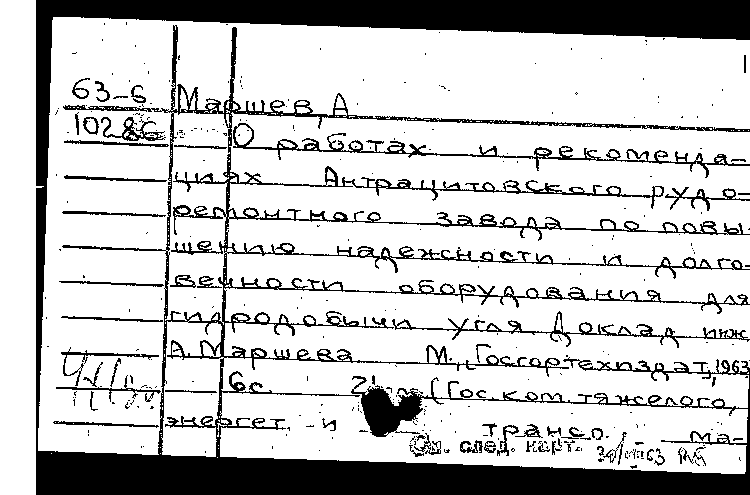 63-6 Маршев, А
10286 О работах и рекоменда-
циях Антрацитовского рудо-
ремонтного завода по повы-
шению надежности и долго-
вечности оборудования для
гидродобычи угля Доклад инж
А. Маршева М., [Госгортехиздат], 1963
6с. (Гос. ком. тяжелого,
энергет. и трансп. ма-
См. след. карт.